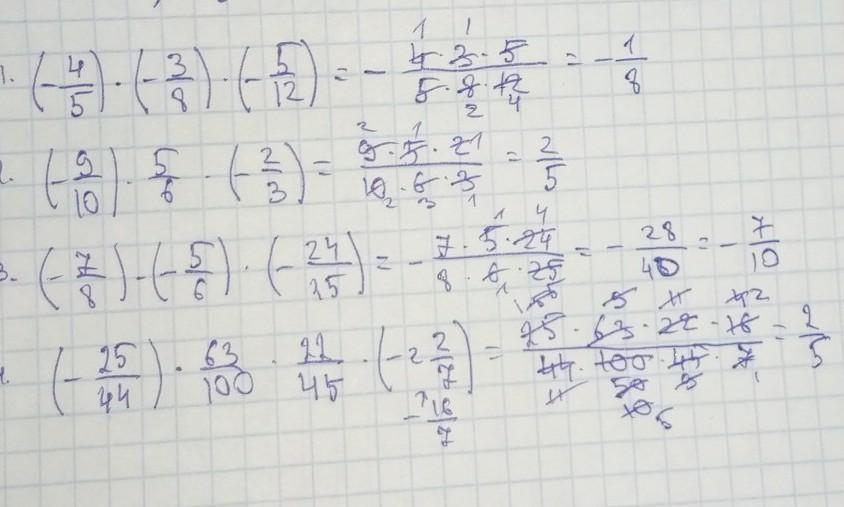 1. (-4/5) · (-3/8) · (-5/12) = - (4·3·5)/(5·8·12) = -1/8
(-9/10) · 5/6 · (-2/3) = (9·5·21)/(10·6·3) = 2/5
3. (-7/8) - (-5/6) · (-24/25) = - (7·5·24)/(8·6·25) = -28/40 = -7/10
(-25/44) · 63/100 · 22/45 · (-2 2/7) = (25·63·22·16)/(44·100·45·7) = 2/5
-16/7